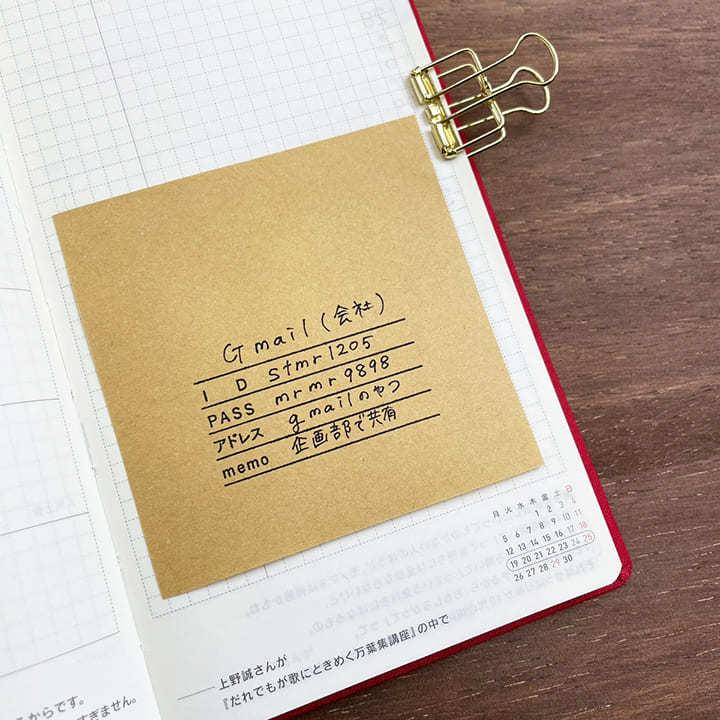 Gmail (会社)
I D stmr1205
PASS mrmr9898
アドレス gmailのやつ
memo 企画部で共有
月 火 水 木 金 土 日
1 2 3 4
5 6 7 8 9 10 11
12 13 14 15 16 17 18
19 20 21 22 23 24 25
26 27 28 29 30
上野誠さんが
『だれでもが歌にときめく万葉集講座』の中で
からです。
すぎません。